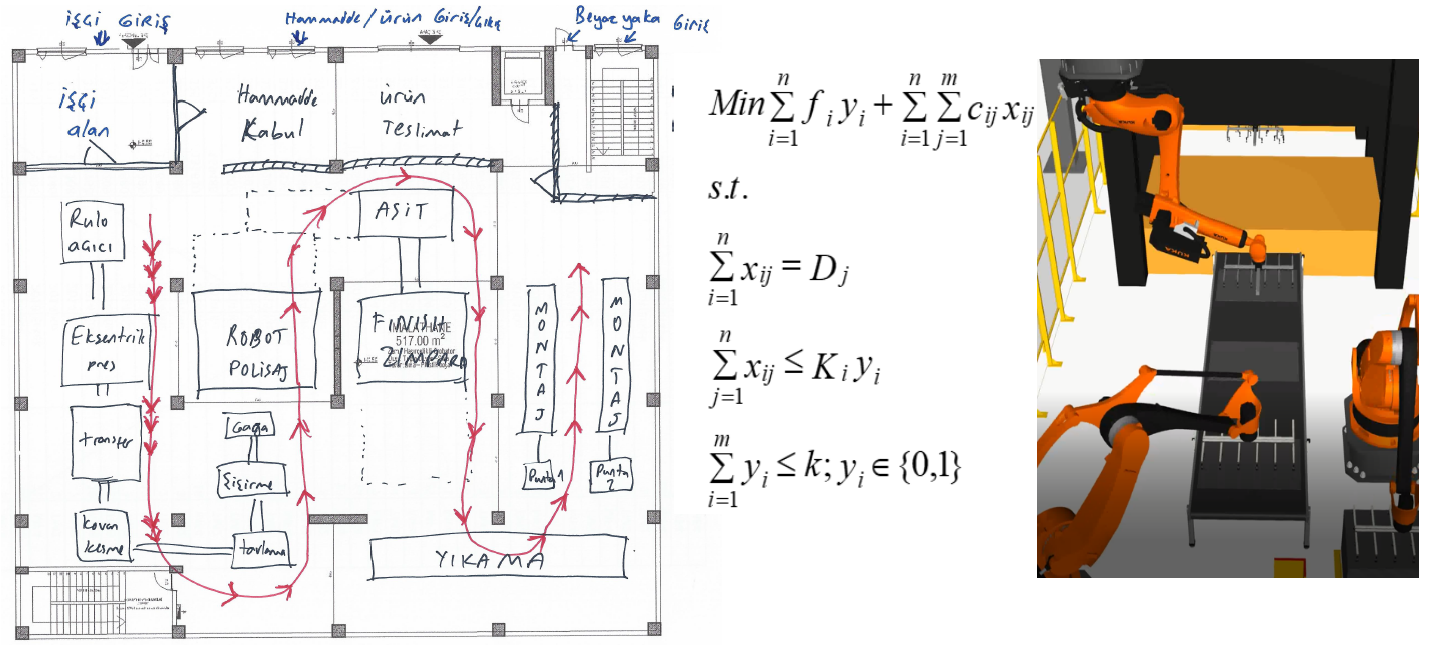 işçi GİRİŞ
Hammadde / ürün Giriş/çıkış
Beyaz yaka Giriş
işçi
alan
Hammadde
Kabul
ürün
Teslimat
Rulo
açıcı
ASİT
Eksantrik
pres
ROBOT
POLİSAJ
FINISH
ZIMPARA
517.00 m²
MONTAJ
MONTAJ
transfer
Gaga
Şişirme
Punta 1
Punta
2
Kovan
kesme
tavlama
YIKAMA
Min ∑ᵢ₌₁ⁿ fᵢ yᵢ + ∑ᵢ₌₁ⁿ ∑ⱼ₌₁ᵐ cᵢⱼ xᵢⱼ
s.t.
∑ᵢ₌₁ⁿ xᵢⱼ = Dⱼ
∑ⱼ₌₁ⁿ xᵢⱼ ≤ Kᵢ yᵢ
∑ᵢ₌₁ᵐ yᵢ ≤ k; yᵢ ∈ {0,1}
KUKA